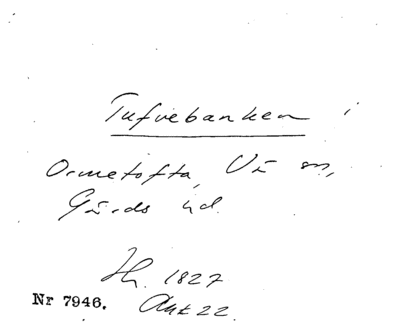 Tufvebanken i
Ormetofta, Vä sn,
Gärds hd.
Hr. 1827
Nr 7946. Akt 22.